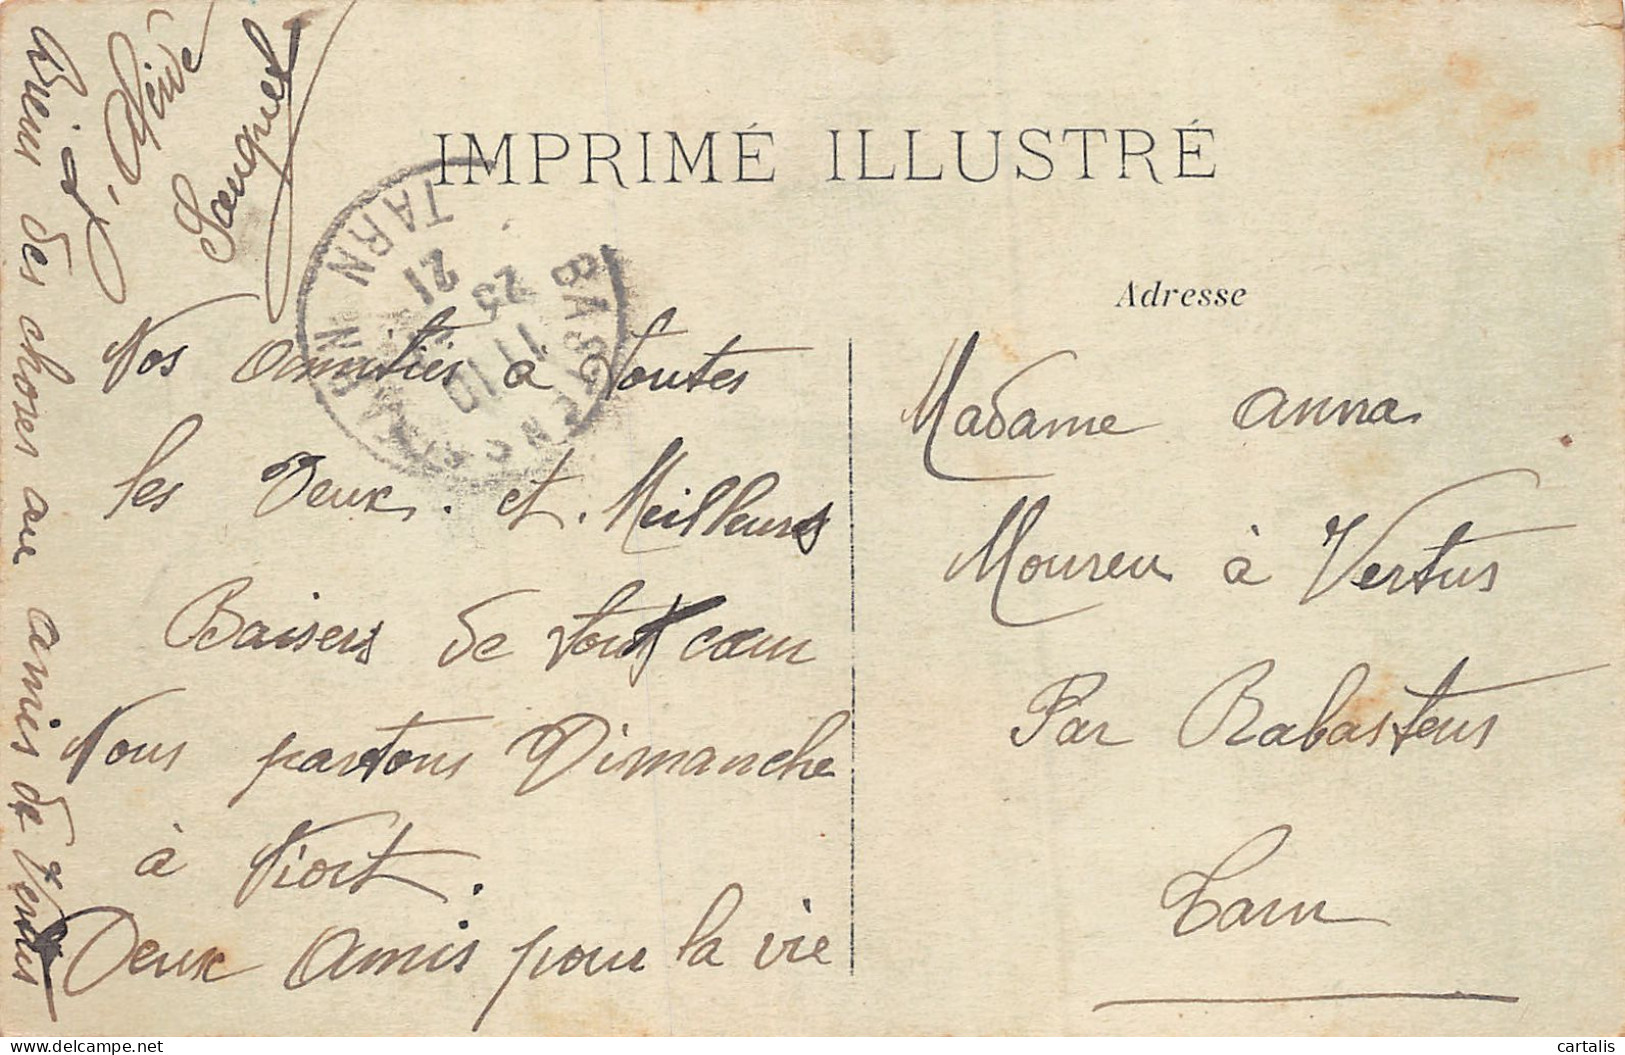 IMPRIMÉ ILLUSTRÉ
Adresse
Nos amitiés à Toutes
les Deux. et. Meilleurs
Baisers de tout cœur
Nous partons Dimanche
à Niort.
Deux Amis pour la vie
Bien des choses au amis de Vertus
Madame anna
Moureu à Vertus
Par Rabastens
Tarn
RABASTENS
TARN
TARN
21
23
11 10
delcampe.net
cartalis